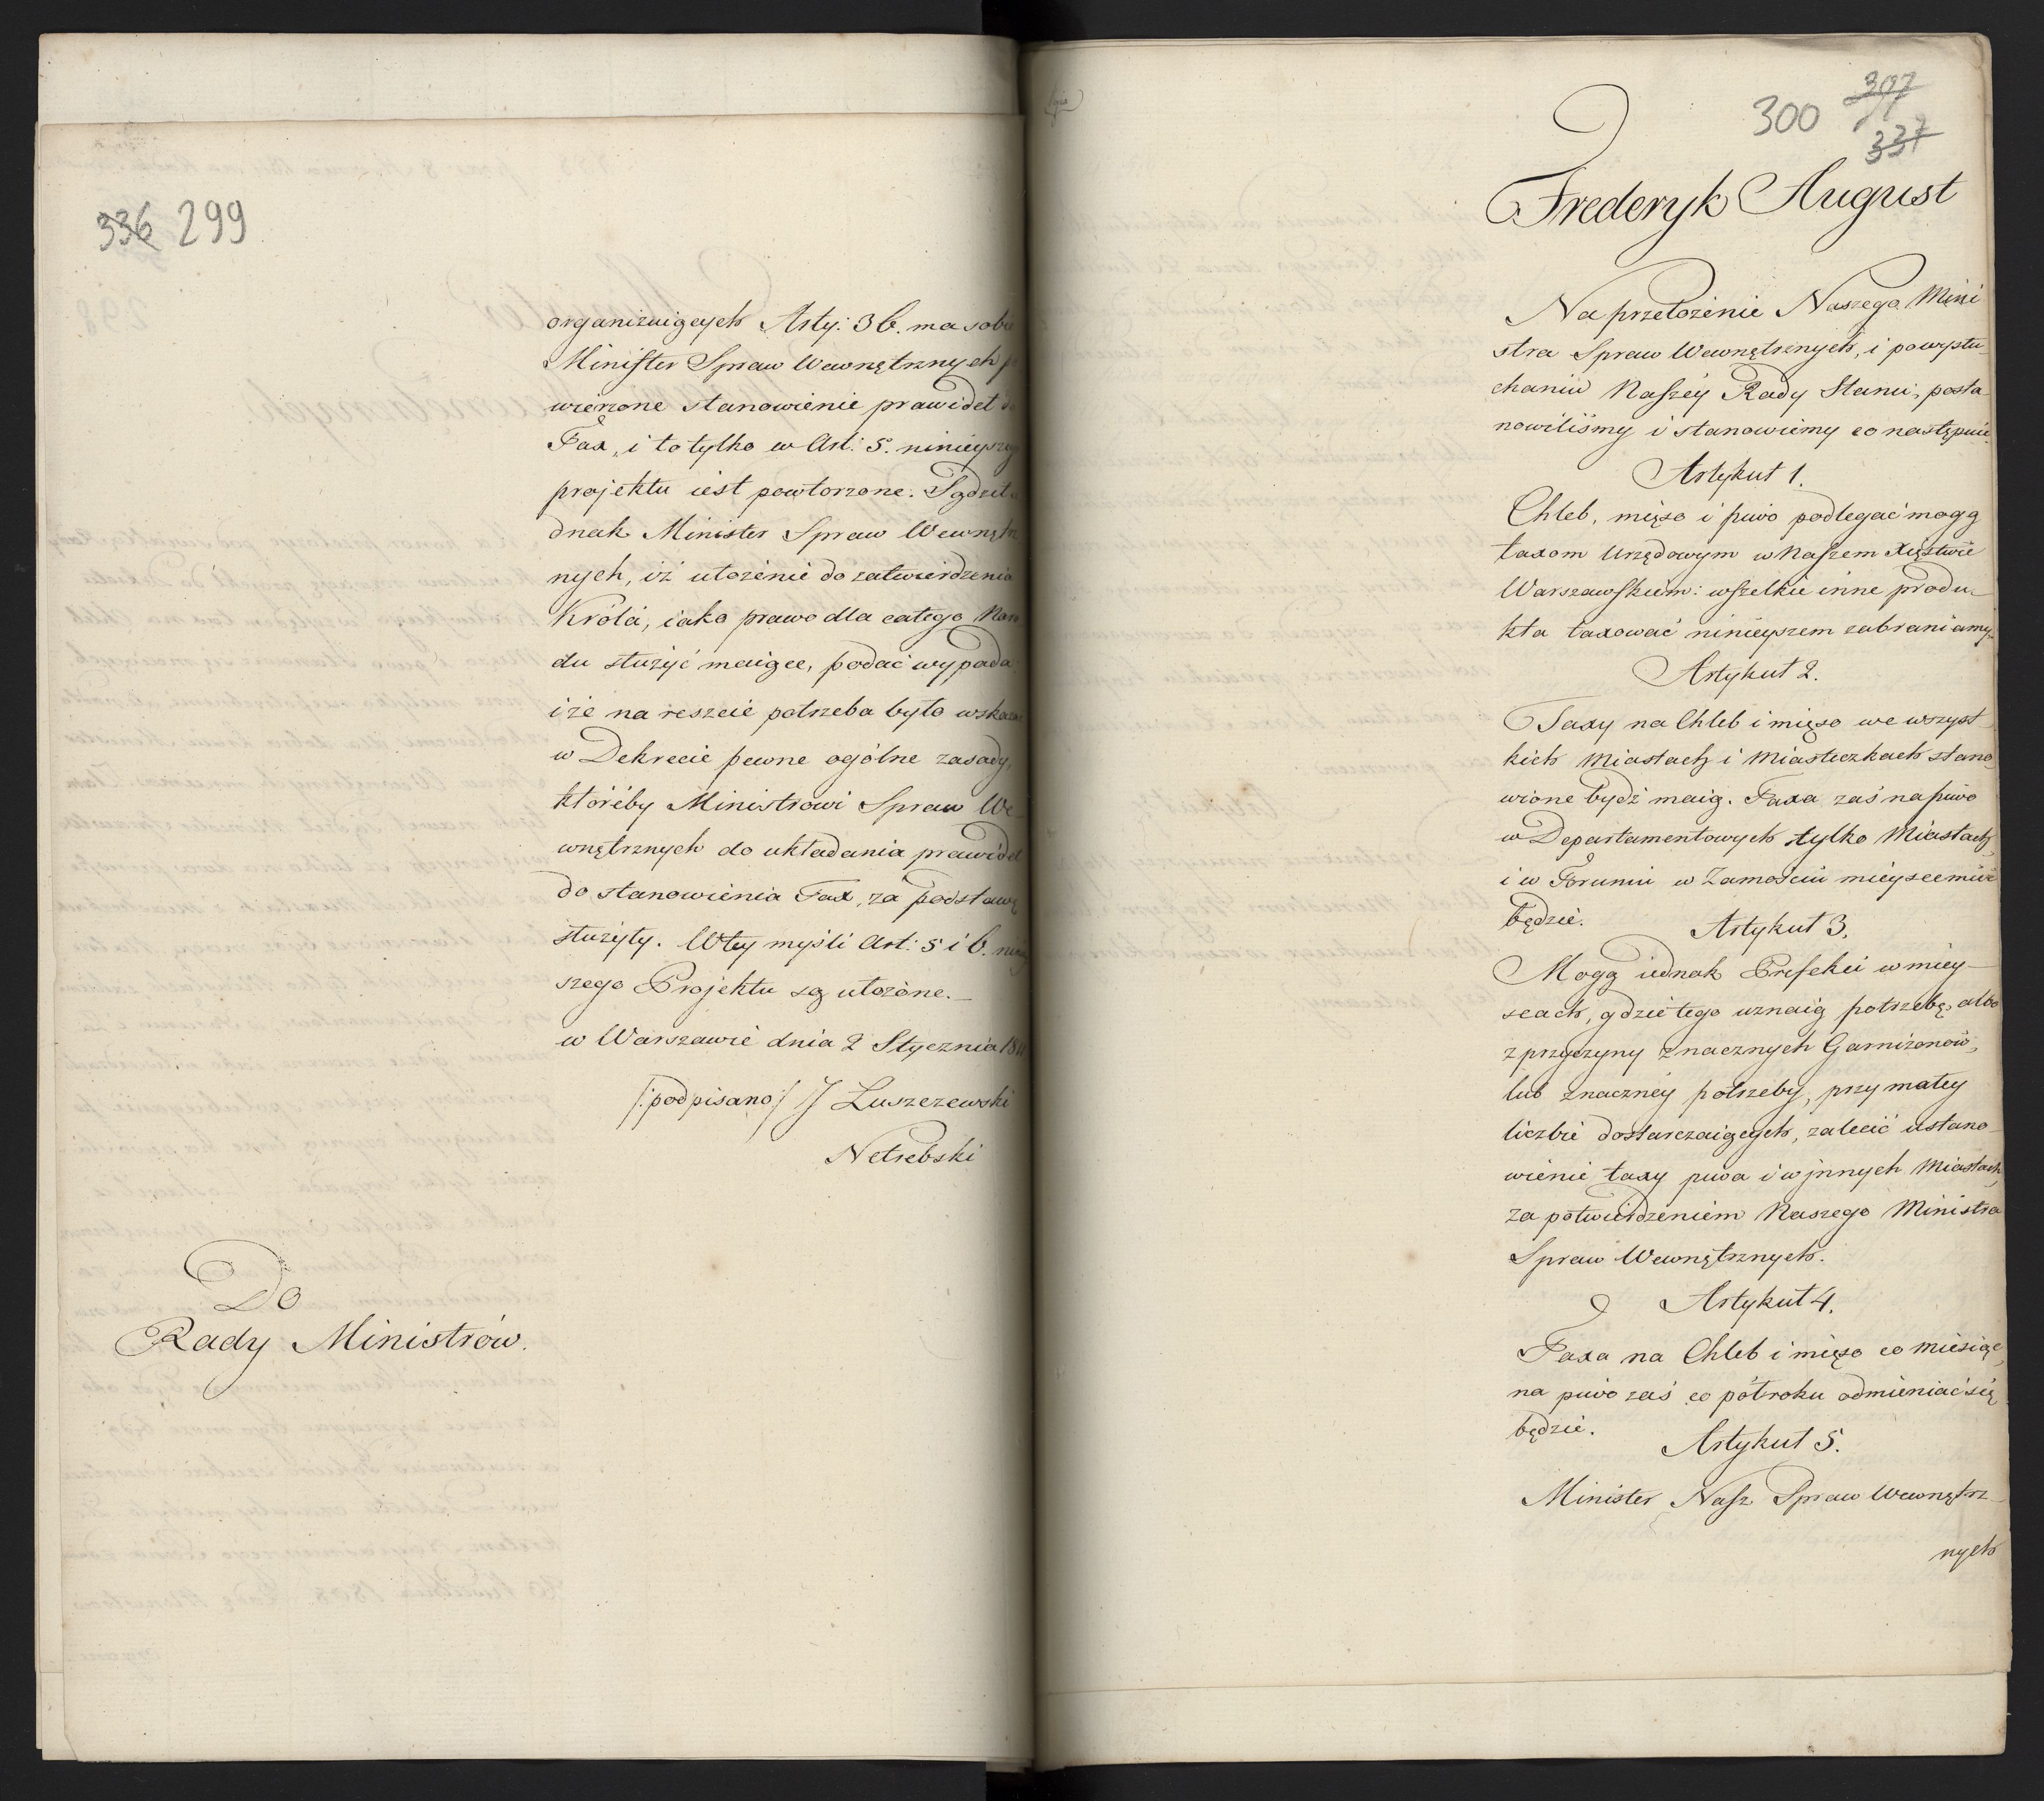 336 299
organizuiących Arty: 36. ma sobie
Minister Spraw Wewnętrznych po
wierzone stanowienie prawideł do
Tax, i to tylko w Art: 5. ninieyszego
projektu iest powtorzone. Sądził ie
dnak Minister Spraw Wewnętrz
nych, iż ułożenie do zatwierdzenia
Króla, iako prawo dla całego Naro
du służyć maiące, podać wypada,
i że na reszcie potrzeba było wskazać
w Dekrecie pewne ogólne zasady,
któréby Ministrowi Spraw We
wnętrznych do układania prawideł
do stanowienia Tax, za podstawę
służyły. W tey myśli Art: 5 i 6. niniey
szego Projektu są ułożone.
w Warszawie dnia 2 Stycznia 1811
/:podpisano/ J Łuszczewski
Netrebski
Do
Rady Ministrów.
300 307
337
Frederyk August
Na przełożenie Naszego Mini
stra Spraw Wewnętrznych, i po wysłu-
chaniu Naszéy Rady Stanu, posta-
nowiliśmy i stanowiemy co następuie.
Artykuł 1.
Chleb, mięso i piwo podlegać mogą
taxom Urzędowym w Naszem Xięstwie
Warszawskiem: wszelkie inne produ-
kta taxować ninieyszem zabraniamy.
Artykuł 2.
Taxy na Chleb i mięso we wszyst-
kich Miastach i Miasteczkach stano
wione bydź maią. Taxa zaś na piwo
w Departamentowych tylko Miastach,
i w Toruniu w Zamościu mieysce mieć
będzie.
Artykuł 3.
Mogą iednak Prefekci w miey-
scach, gdzie tego uznaią potrzebę, albo
z przyczyny znacznych Garnizonów,
lub znacznéy potrzeby, przy małey
liczbie dostarczaiących, zalecić ustano-
wienie taxy piwa i w jnnych Miastach,
za potwierdzeniem Naszego Ministra
Spraw Wewnętrznych.
Artykuł 4.
Taxa na Chleb i mięso co miesiąc,
na piwo zaś co pół roku odmieniać się
będzie.
Artykuł 5.
Minister Nasz Spraw Wewnętrz-
nych